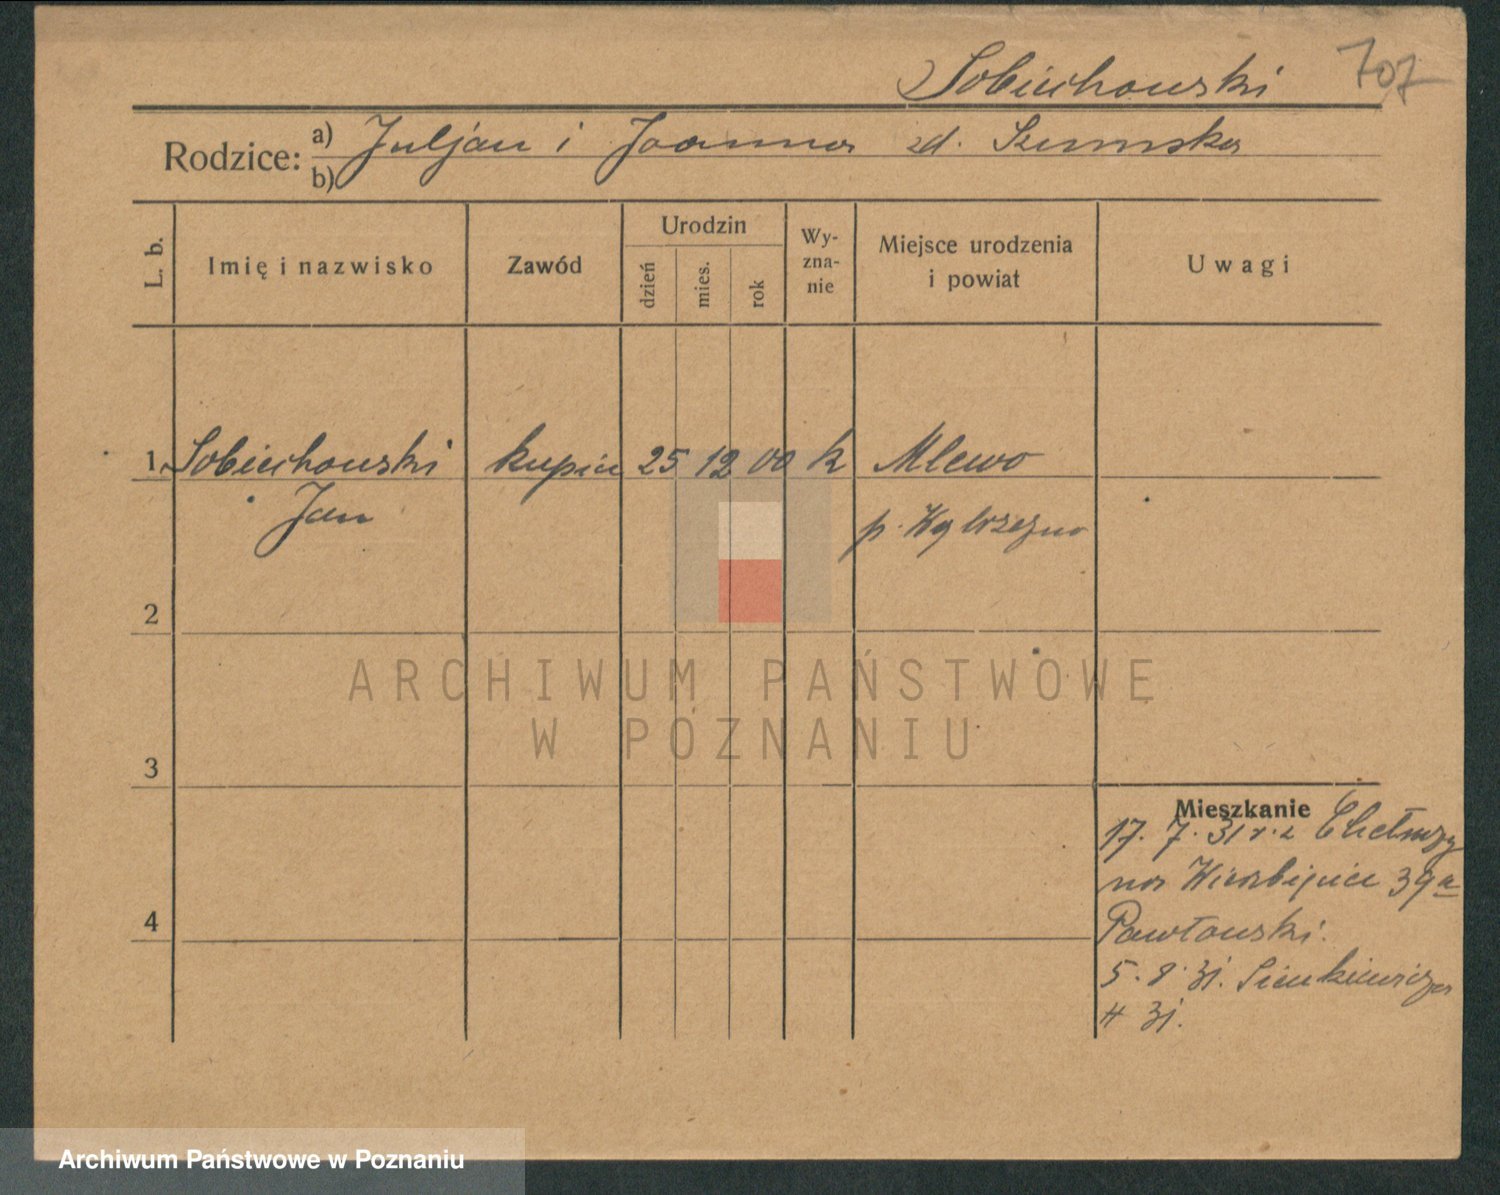 Sobiechowski 707
Rodzice: a) Juljan i Joanna zd. Szumska
b)
L. b.
Imię i nazwisko
Zawód
Urodzin
dzień
mies.
rok
Wy-
zna-
nie
Miejsce urodzenia
i powiat
Uwagi
1. Sobiechowski kupiec 25 12 00 k Mlewo
Jan p. Wąbrzeźno
2
3
4
Mieszkanie
17. 7. 31 r. z Chełmży
na Wierzbięcice 39a
Pawłowski.
5. 8. 31. Sienkiewicza
31.
ARCHIWUM PAŃSTWOWE
W POZNANIU
Archiwum Państwowe w Poznaniu